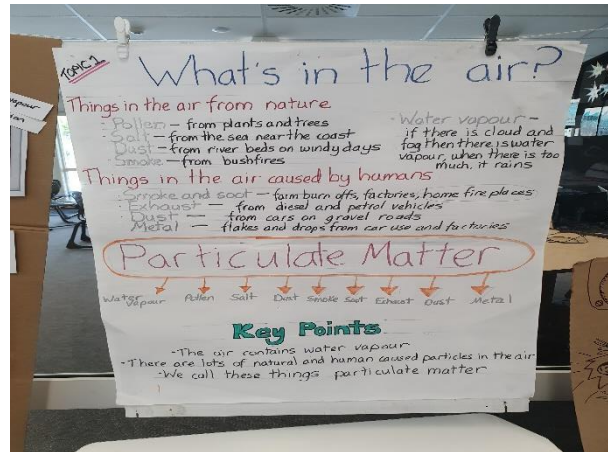 TOPIC 1
What's in the air?
Things in the air from nature
Pollen – from plants and trees
Salt – from the sea near the coast
Dust – from river beds on windy days
Smoke – from bushfires
Water vapour –
if there is cloud and
fog then there is water
vapour, when there is too
much, it rains
Things in the air caused by humans
Smoke and soot – farm burn offs, factories, home fire places
Exhaust – from diesel and petrol vehicles
Dust – from cars on gravel roads
Metal – flakes and drops from car use and factories
Particulate Matter
Water vapour Pollen Salt Dust Smoke Soot Exhaust Dust Metal
Key Points
- The air contains water vapour
- There are lots of natural and human caused particles in the air
- We call these things particulate matter
vapour